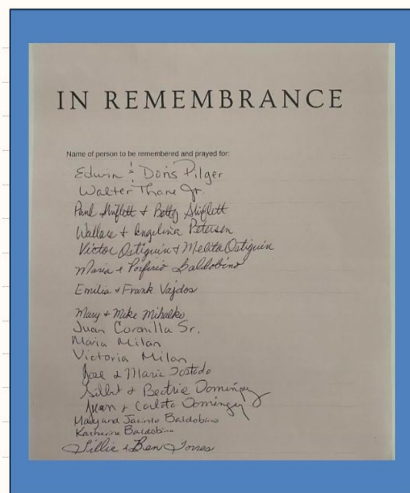 IN REMEMBRANCE
Name of person to be remembered and prayed for:
Edwin & Doris Pilger
Walter Thane Jr.
Paul Shiflett & Betty Shiflett
Wallace & Angelina Petersen
Victor Ostiguin & Melita Ostiguin
Maria & Porfirio Baldobino
Emilia & Frank Vajdos
Mary & Mike Mihalko
Juan Coronilla Sr.
Maria Milan
Victoria Milan
Joe & Marie Tostado
& Beatrice Dominguez
Juan & Carlota Dominguez
Mary and Jacinto Baldobino
Katherine Baldobino
Lillie & Ben Torres